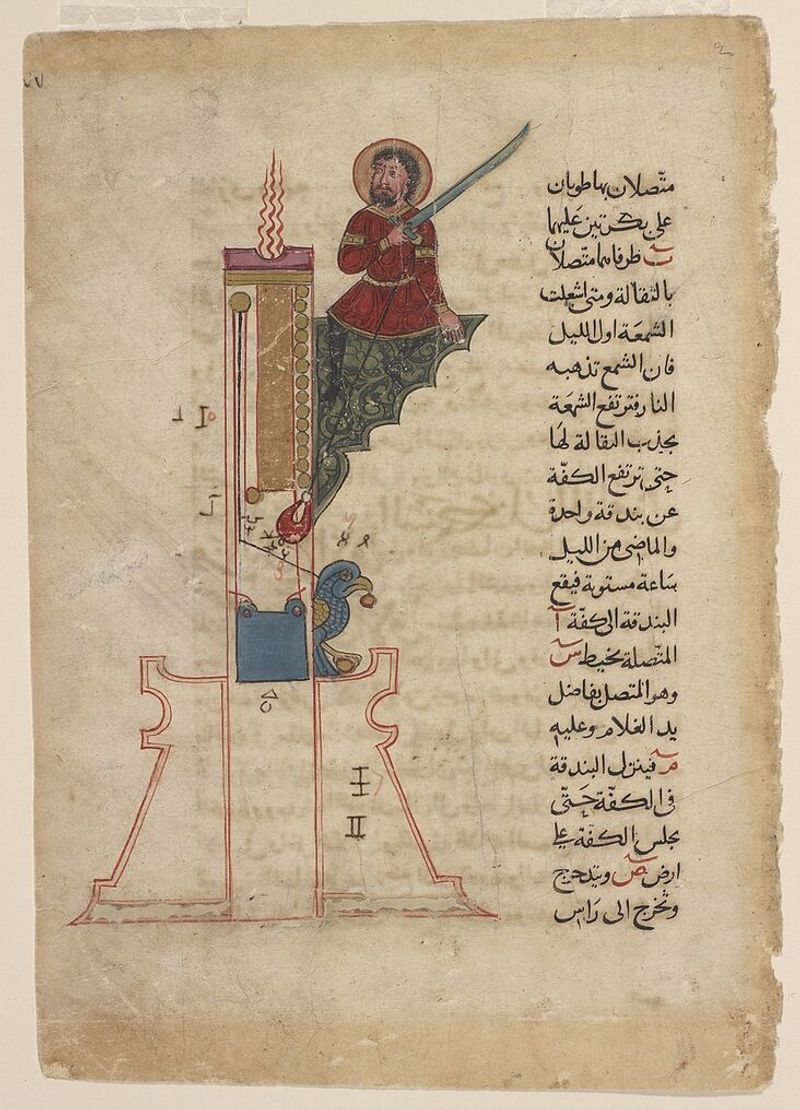 متّصلان بها طوبان
على بكرتين عليهما
طرفاهما متّصلان
بالثقالة ومتى اشعلت
الشمعَة اول الليل
فان الشمع تذهبه
النار فترتفع الشمعَة
بجذب الثقالة لهَا
حتى ترتفع الكفّة
عن بندقة واحدة
والماضى من الليل
ساعة مستوية فيقع
البندقة الى كفّة آ
المتّصلة بخيط س
وهو المتصل بفاضل
يد الغلام وعليه
م فينزل البندقة
فى الكفّة حَتّى
يجلس الكفّة على
ارض ص ويتدحرج
وتخرج الى رَاس